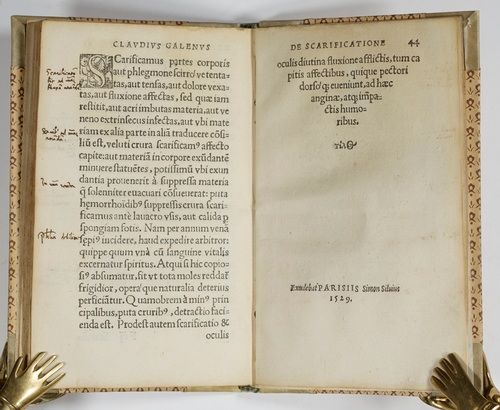 CLAVDIVS GALENVS
Scarificamus partes corporis
aut phlegmone scirro've tenta-
tas, aut tensas, aut dolore vexa-
tas, aut fluxione affectas, sed quæ iam
restitit, aut acri imbutas materia, aut ve
neno extrinsecus infectas, aut vbi mate
riam ex alia parte in aliā traducere cōsi-
liū est, veluti crura scarificamꝰ affecto
capite: aut materiā in corpore exūdantē
minuere statuētes, potissimū vbi exun
dantia prouenerit à suppressa materia
q̄ solenniter euacuari cōsueuerat: puta
hęmorrhoidibꝰ suppressis crura scari-
ficamus antè lauacro vsis, aut calida p
spongiam fotis. Nam per annum venā
sępiꝰ incidere, haud expedire arbitror:
quippe quum vnà cū sanguine vitalis
excernatur spiritus. Atqui si hic copio-
sꝰ absumatur, sit vt tota moles reddat͛
frigidior, opera'que naturalia deterius
perficiātur. Quamobrem à minꝰ prin-
cipalibus, puta cruribꝰ, detractio facij-
enda est. Prodest autem scarificatio &
oculis
DE SCARIFICATIONE 44
oculis diutina fluxione afflictis, tum ca
pitis affectibus, quique pectori
dorsoq; eueniunt, ad hæc
anginæ, atq; impa-
ctis humo-
ribus.
τέλΘ
Excudebat PARISIIS Simon Siluius
1529.